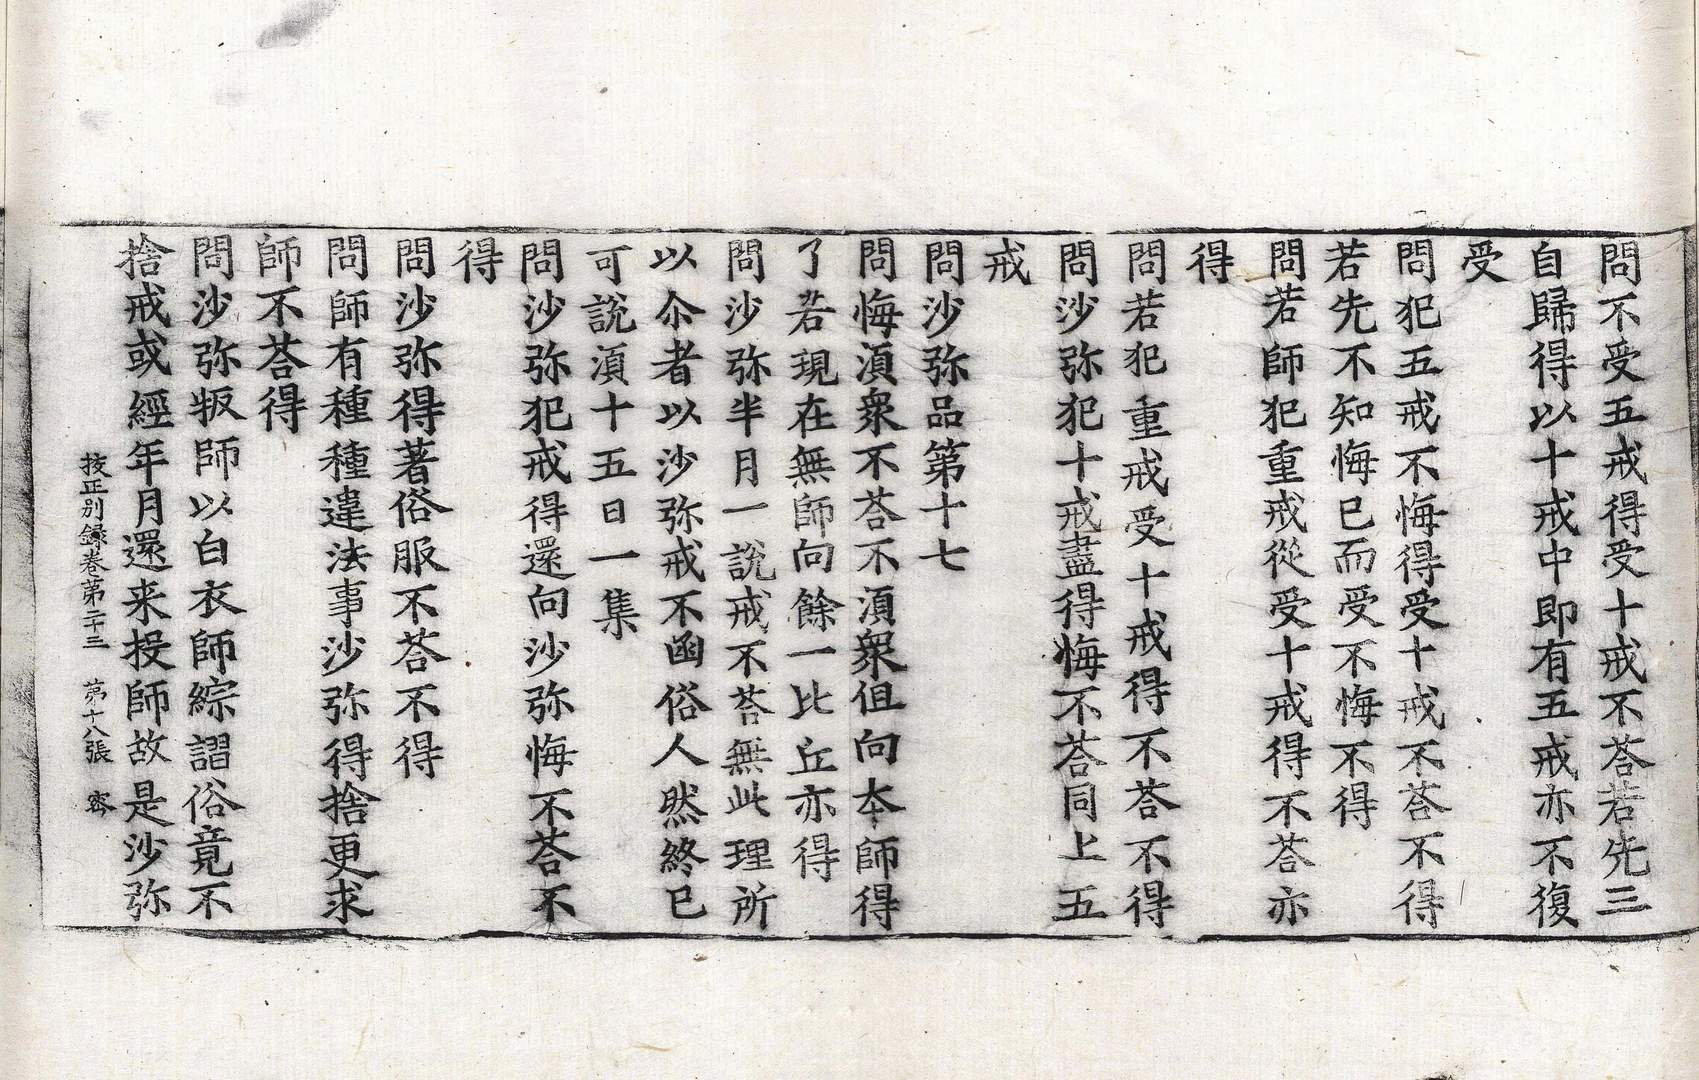 問不受五戒得受十戒不荅若先三
自歸得以十戒中即有五戒亦不復
受
問犯五戒不悔得受十戒不荅不得
若先不知悔已而受不悔不得
問若師犯重戒從受十戒得不荅亦
得
問若犯重戒受十戒得不荅不得
問沙弥犯十戒盡得悔不荅同上五
戒
問沙弥品第十七
問悔湏衆不荅不湏衆但向夲師得
了若現在無師向餘一比丘亦得
問沙弥半月一說戒不荅無此理所
以尒者以沙弥戒不函俗人然終已
可說湏十五日一集
問沙弥犯戒得還向沙弥悔不荅不
得
問沙弥得著俗服不荅不得
問師有種種違法事沙弥得捨更求
師不荅得
問沙弥叛師以白衣師綜謵俗竟不
捨戒或經年月還来投師故是沙弥
挍正別錄卷苐二十三 苐十八張 密